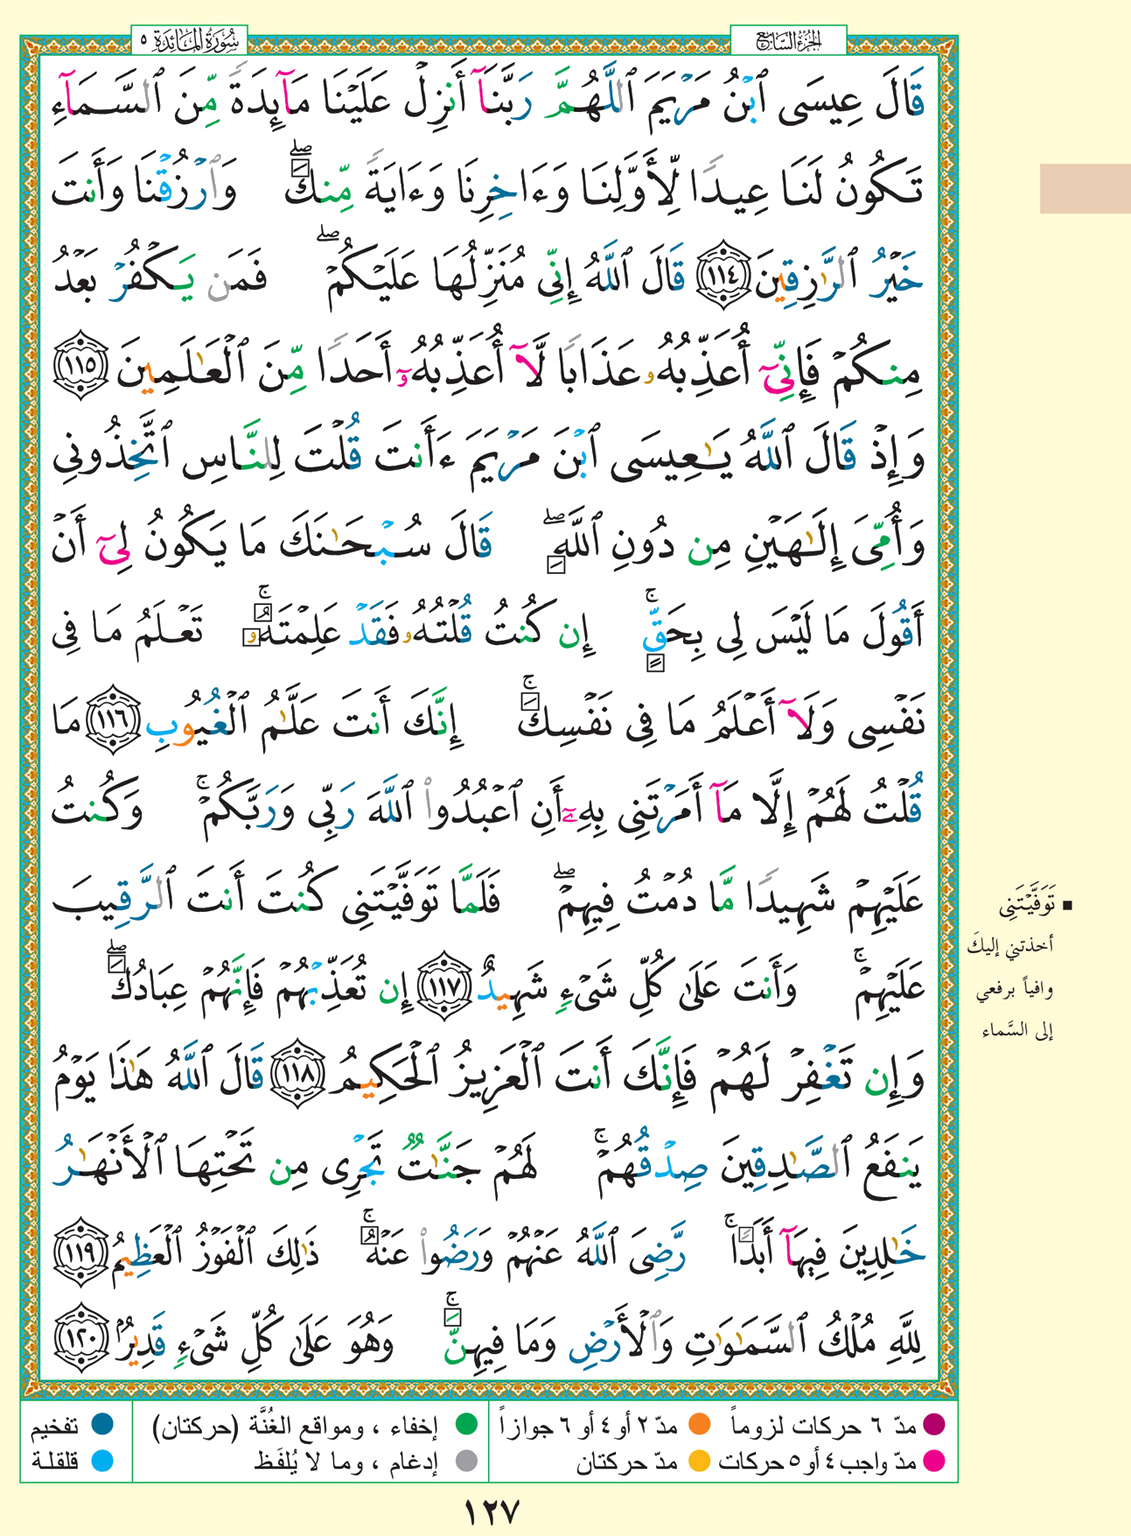 الجزء السابع
سورة المائدة ٥
قَالَ عِيسَى ٱبْنُ مَرْيَمَ ٱللَّهُمَّ رَبَّنَآ أَنزِلْ عَلَيْنَا مَآئِدَةً مِّنَ ٱلسَّمَآءِ
تَكُونُ لَنَا عِيدًا لِّأَوَّلِنَا وَءَاخِرِنَا وَءَايَةً مِّنكَ ۖ وَٱرْزُقْنَا وَأَنتَ
خَيْرُ ٱلرَّٰزِقِينَ ١١٤ قَالَ ٱللَّهُ إِنِّى مُنَزِّلُهَا عَلَيْكُمْ ۖ فَمَن يَكْفُرْ بَعْدُ
مِنكُمْ فَإِنِّىٓ أُعَذِّبُهُۥ عَذَابًا لَّآ أُعَذِّبُهُۥٓ أَحَدًا مِّنَ ٱلْعَٰلَمِينَ ١١٥
وَإِذْ قَالَ ٱللَّهُ يَٰعِيسَى ٱبْنَ مَرْيَمَ ءَأَنتَ قُلْتَ لِلنَّاسِ ٱتَّخِذُونِى
وَأُمِّىَ إِلَٰهَيْنِ مِن دُونِ ٱللَّهِ ۖ قَالَ سُبْحَٰنَكَ مَا يَكُونُ لِىٓ أَنْ
أَقُولَ مَا لَيْسَ لِى بِحَقٍّ ۚ إِن كُنتُ قُلْتُهُۥ فَقَدْ عَلِمْتَهُۥ ۚ تَعْلَمُ مَا فِى
نَفْسِى وَلَآ أَعْلَمُ مَا فِى نَفْسِكَ ۚ إِنَّكَ أَنتَ عَلَّٰمُ ٱلْغُيُوبِ ١١٦ مَا
قُلْتُ لَهُمْ إِلَّا مَآ أَمَرْتَنِى بِهِۦٓ أَنِ ٱعْبُدُوا۟ ٱللَّهَ رَبِّى وَرَبَّكُمْ ۚ وَكُنتُ
عَلَيْهِمْ شَهِيدًا مَّا دُمْتُ فِيهِمْ ۖ فَلَمَّا تَوَفَّيْتَنِى كُنتَ أَنتَ ٱلرَّقِيبَ
عَلَيْهِمْ ۚ وَأَنتَ عَلَىٰ كُلِّ شَىْءٍ شَهِيدٌ ١١٧ إِن تُعَذِّبْهُمْ فَإِنَّهُمْ عِبَادُكَ ۖ
وَإِن تَغْفِرْ لَهُمْ فَإِنَّكَ أَنتَ ٱلْعَزِيزُ ٱلْحَكِيمُ ١١٨ قَالَ ٱللَّهُ هَٰذَا يَوْمُ
يَنفَعُ ٱلصَّٰدِقِينَ صِدْقُهُمْ ۚ لَهُمْ جَنَّٰتٌ تَجْرِى مِن تَحْتِهَا ٱلْأَنْهَٰرُ
خَٰلِدِينَ فِيهَآ أَبَدًا ۚ رَّضِىَ ٱللَّهُ عَنْهُمْ وَرَضُوا۟ عَنْهُ ۚ ذَٰلِكَ ٱلْفَوْزُ ٱلْعَظِيمُ ١١٩
لِلَّهِ مُلْكُ ٱلسَّمَٰوَٰتِ وَٱلْأَرْضِ وَمَا فِيهِنَّ ۚ وَهُوَ عَلَىٰ كُلِّ شَىْءٍ قَدِيرٌۢ ١٢٠
▪ تَوَفَّيْتَنِى
أخذتني إليكَ
وافياً برفعي
إلى السَّماء
مدّ ٦ حركات لزوماً ● مدّ ٢ أو ٤ أو ٦ جوازاً ● إخفاء ، ومواقع الغُنَّة (حركتان) ● تفخيم
مدّ واجب ٤ أو ٥ حركات ● مدّ حركتان ● إدغام ، وما لا يُلفَظ ● قلقلة
١٢٧